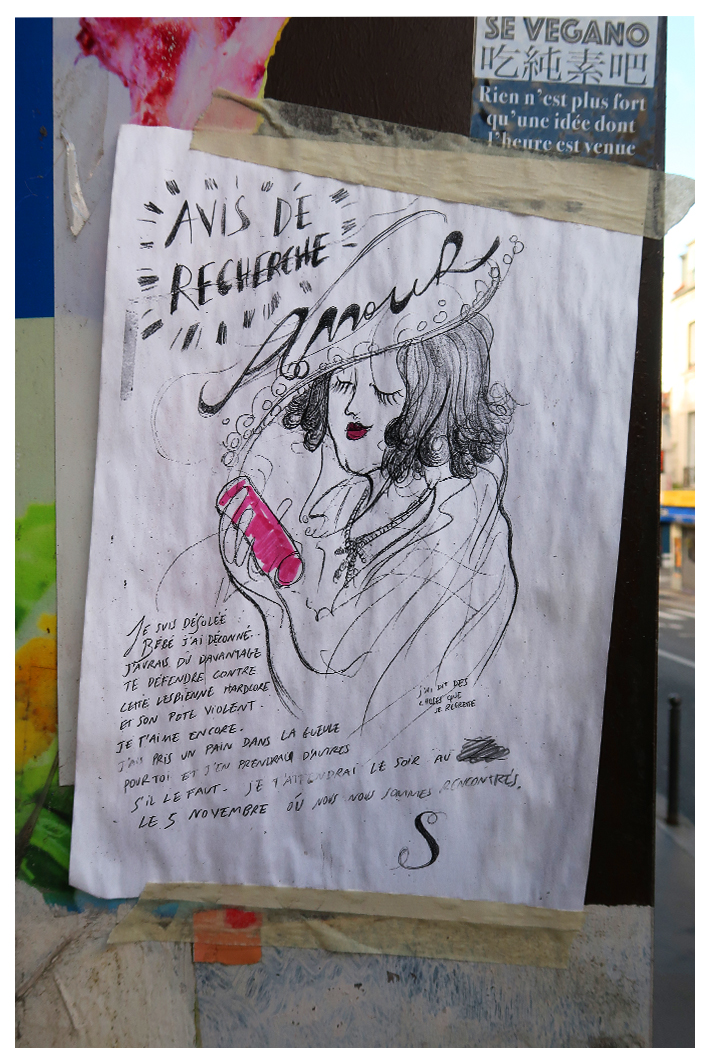 SE VEGANO
吃純素吧
Rien n'est plus fort
qu'une idée dont
l'heure est venue
AVIS DE
RECHERCHE
AMOUR
JE SUIS DÉSOLÉE
BÉBÉ J'AI DÉCONNÉ...
J'AURAIS DÛ DAVANTAGE
TE DÉFENDRE CONTRE
CETTE LESBIENNE HARDCORE
ET SON POTE VIOLENT.
JE T'AIME ENCORE.
J'AI PRIS UN PAIN DANS LA GUEULE
POUR TOI ET J'EN PRENDRAIS D'AUTRES
S'IL LE FAUT. JE T'ATTENDRAI LE SOIR AU
LE 5 NOVEMBRE OÙ NOUS NOUS SOMMES RENCONTRÉS.
J'AI DIT DES
CHOSES QUE
JE REGRETTE
S